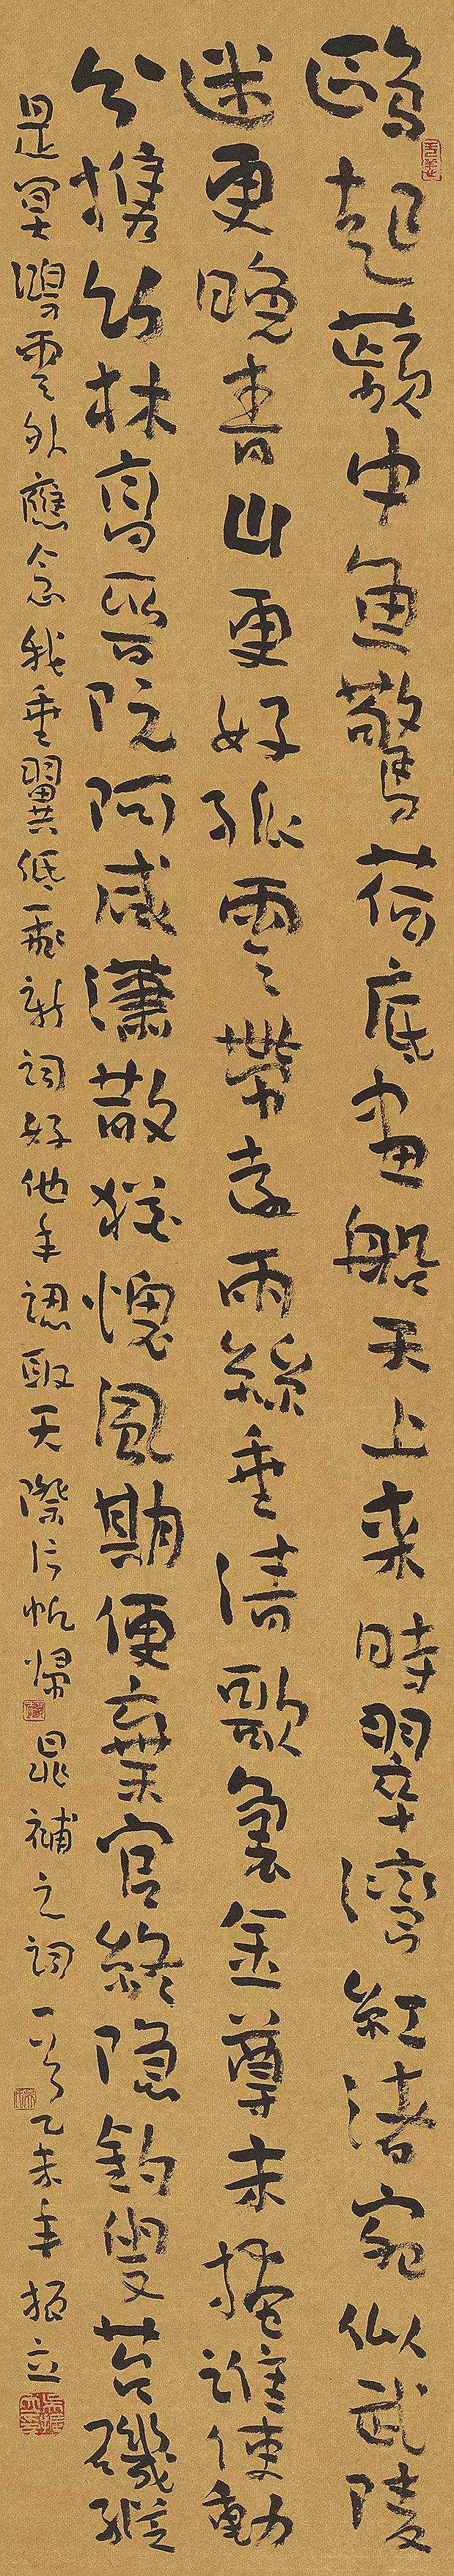 鷗起蘋中魚驚荷底畫船天上來時翠灣紅渚宛似武陵
迷更晚青山更好孤雲帶遠雨絲垂清歌裏金尊未掩誰使動
分攜竹林高晉阮阿咸瀟散猶愧風期便棄官終隱釣叟苔磯縱
是冥鴻雲外應念我垂翼低飛新詞好他年認取天際片帆歸 晁補之詞一首 乙未年振立